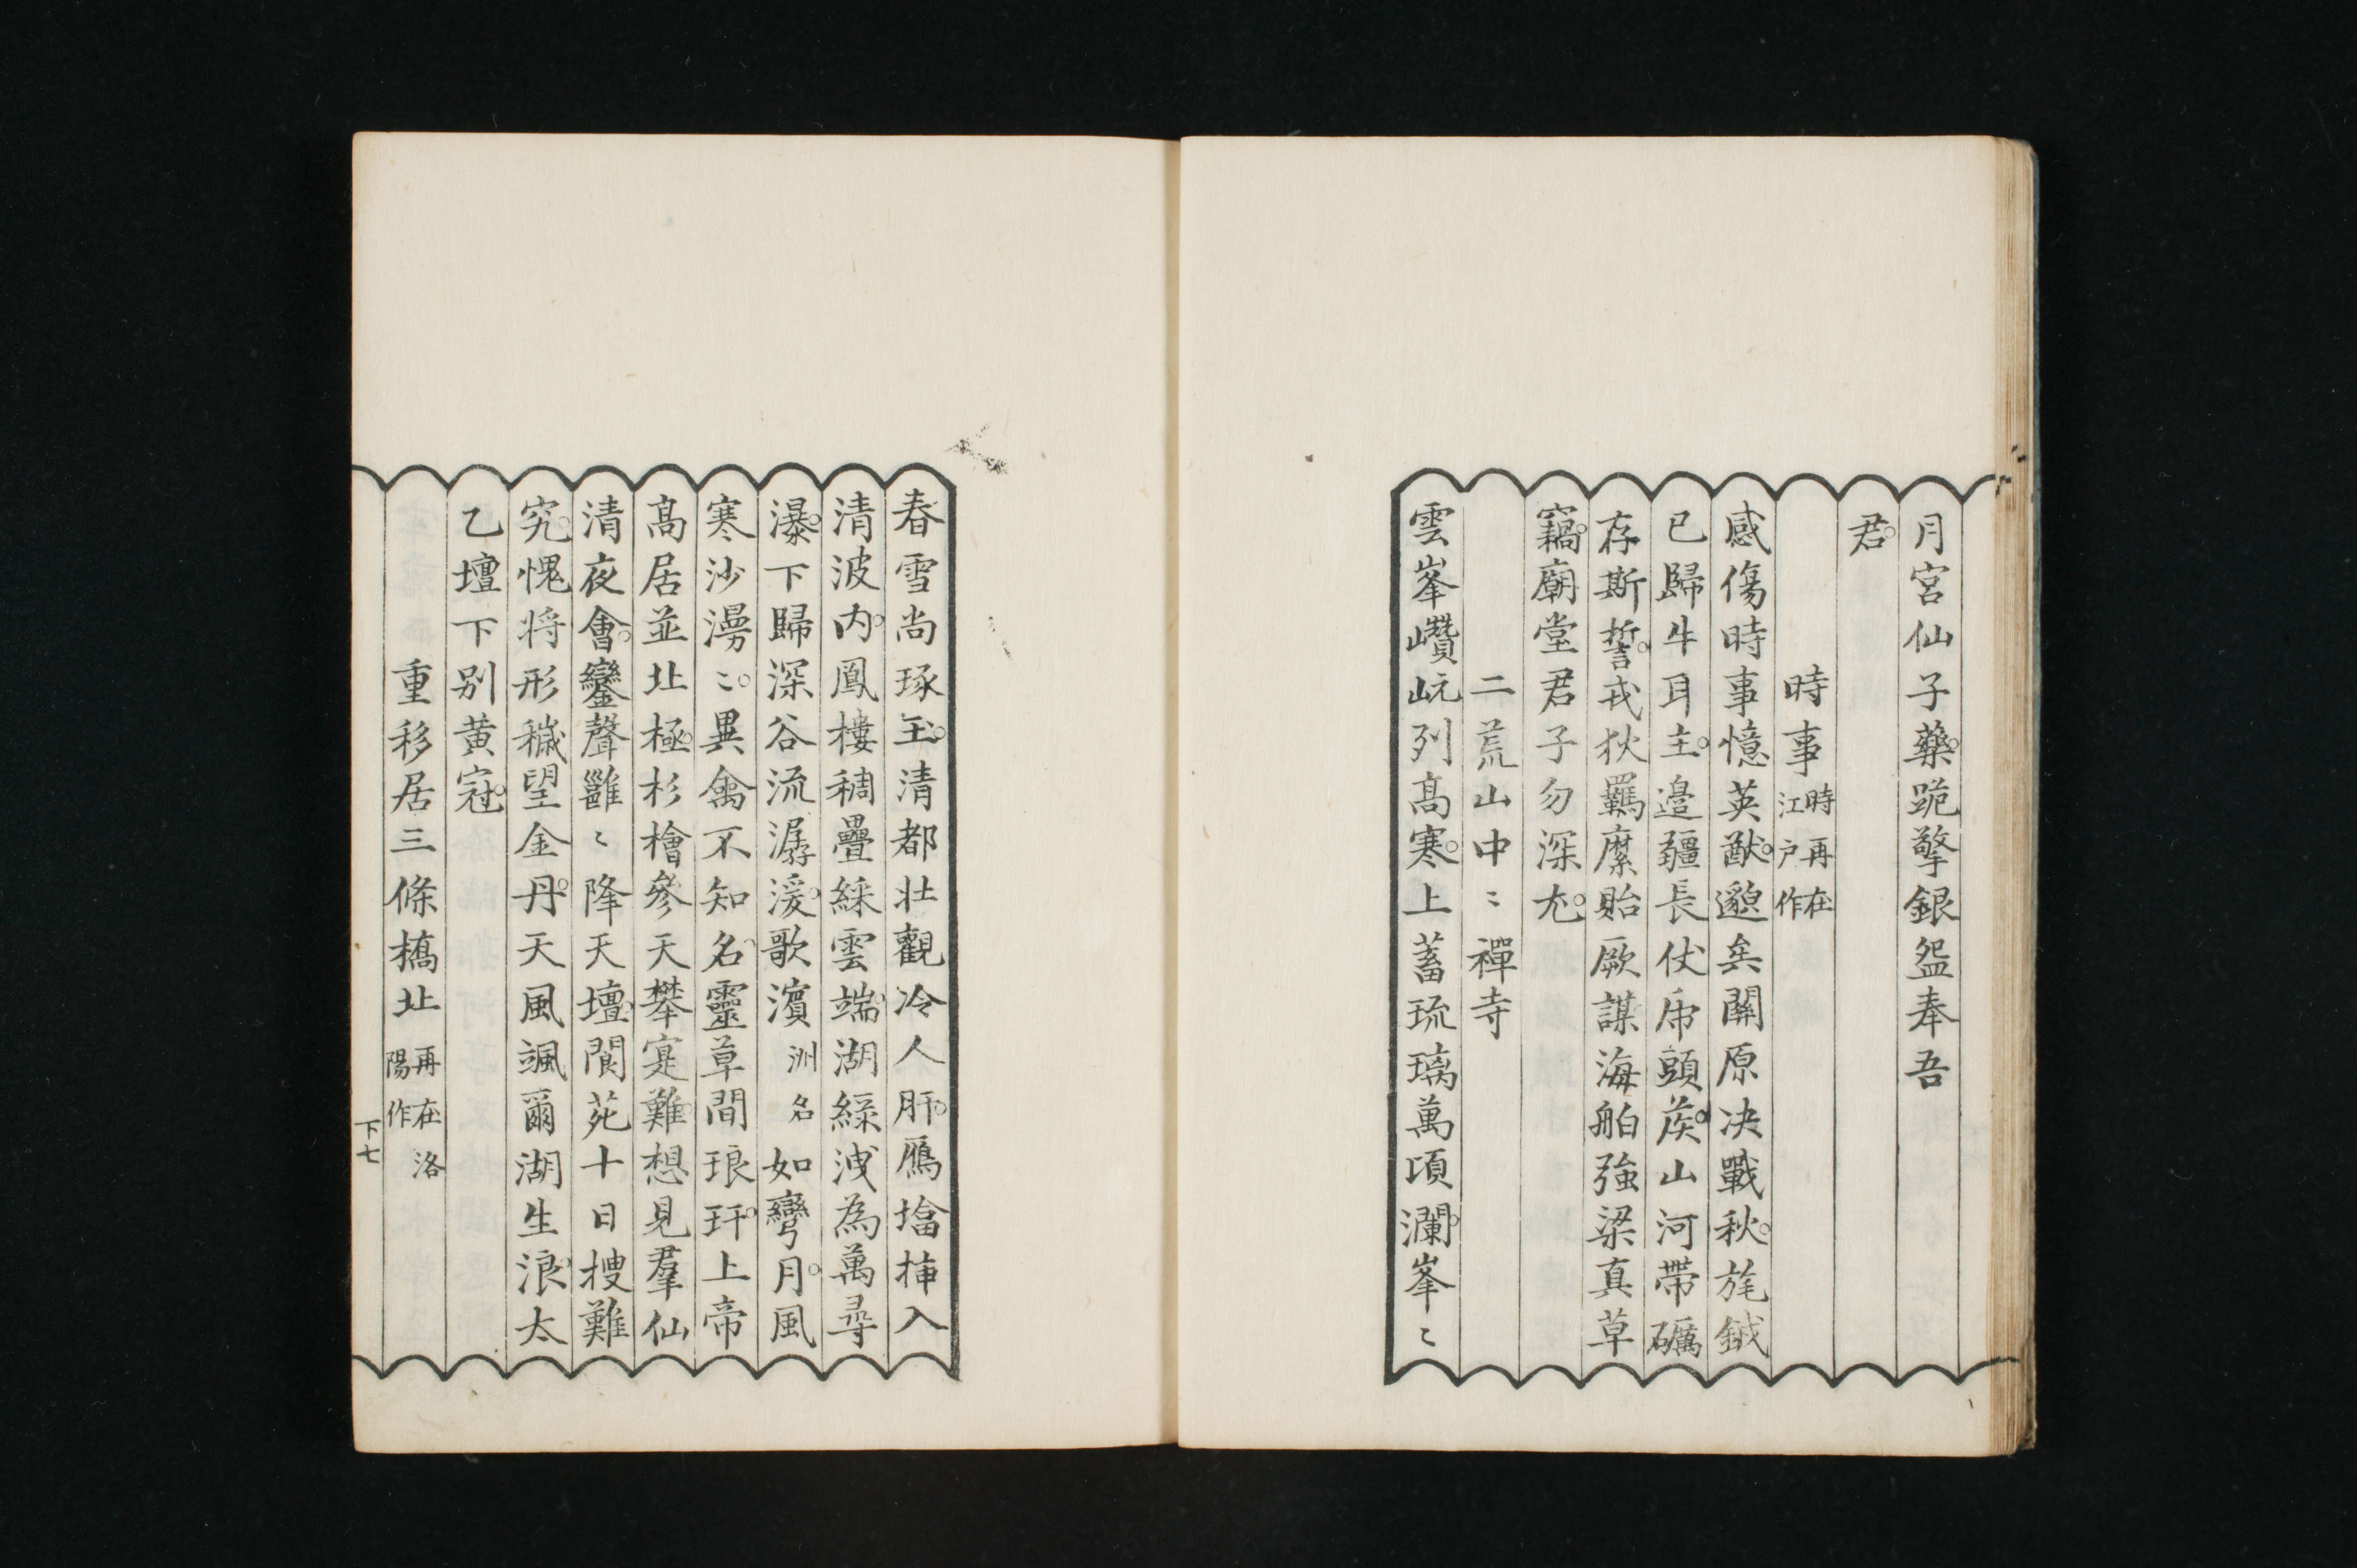 月宮仙子藥。跪擎銀盌奉吾
君。
時事 時再在江戶作
感傷時事憶英猷。邈矣關原決戰秋。旄鉞
已歸牛耳主。邊疆長仗虎頭矦。山河帶礪
存斯誓。戎狄羈縻貽厥謀。海舶強梁真草
竊。廟堂君子勿深尤。
二荒山中〻禪寺
雲峯巑岏列高寒。上蓄琉璃萬頃瀾。峯〻
春雪尚琢玉。清都壯觀冷人肝。鴈墖揷入
清波內。鳳樓稠疊綵雲端。湖綠洩為萬尋
瀑。下歸深谷流潺湲。歌濱 洲名 如彎月。風
寒沙漫〻。異禽不知名。靈草間琅玕。上帝
高居並北極。杉檜參天攀寔難。想見羣仙
清夜會。鑾聲雝〻降天壇。閬苑十日搜難
究。愧將形穢望金丹。天風颯爾湖生浪。太
乙壇下別黃冠。
重移居三條橋北 再在洛陽作
下七